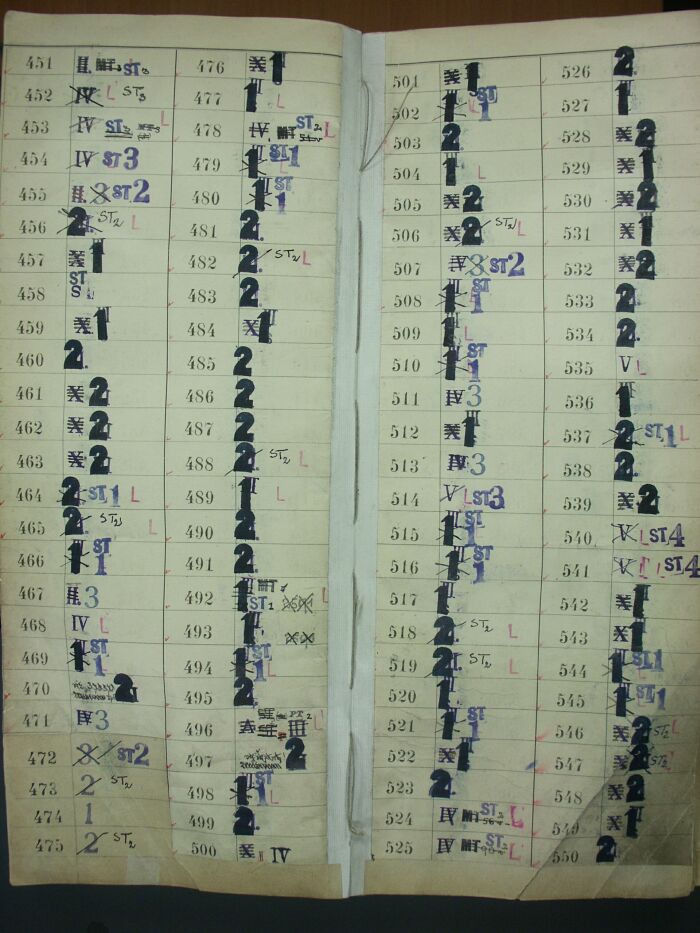 451 II. MT. ST3
452 IV L ST3
453 IV ST2 L
454 IV ST3
455 II. 3 ST2
456 2 ST2 L
457 X 1
458 ST
459 X 1
460 2.
461 X 2
462 X 2
463 X 2
464 2 ST1 L
465 2. ST2 L
466 1 ST1
467 II. 3
468 IV L
469 1 ST1
470 2
471 IV 3
472 3 ST2
473 2 ST2
474 1
475 2 ST2
476 X 1
477 1 L
478 IV MT ST2 L
479 1 ST1 L
480 1 ST1
481 2.
482 2. ST2 L
483 2
484 X 1
485 2
486 2
487 2
488 2. ST2 L
489 1 L
490 2.
491 2.
492 1 MT ST1 L
493 1
494 1 ST1 L
495 2.
496 PT2 L
497 2
498 1 ST1 L
499 2.
500 X IV
501 X 1
502 1 L ST1
503 2.
504 1 L
505 X 2
506 X 2 ST2 L
507 IV 3 ST2
508 1 ST1 L
509 1 L
510 1 ST1
511 IV 3
512 X 1
513 IV 3
514 V L ST3
515 1 ST1
516 1 ST1
517 1
518 2. ST2 L
519 2. ST2 L
520 1
521 1 ST1
522 X 1
523 2.
524 IV MT ST3 L
525 IV MT ST2 L
526 2.
527 1
528 X 2
529 X 1
530 X 2
531 X 1
532 X 2
533 2.
534 2.
535 V L
536 1
537 2 ST1 L
538 2.
539 X 2
540 V L ST4
541 V L L ST4
542 X 1
543 X 1
544 1 ST1
545 1 ST1
546 X 2 ST2 L
547 X 2 ST2
548 X 2
549 X 1
550 2.